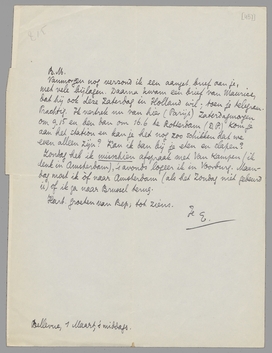 B.M.
Vanmorgen nog verzond ik een aanget. brief aan je,
met vele bijlagen. Daarna kwam een brief van Maurice,
dat hij ook deze Zaterdag in Holland wil: toen je telegram.
Prachtig. Ik vertrek nu van hier (Parijs) Zaterdagmorgen
om 9.15 en ben dan om 16.6 te Rotterdam (D.P.) Kom je
aan het station en kan je het nog zoo schikken dat we
even alleen zijn? Kan ik dan bij je eten en slapen?
Zondag heb ik misschien afspraak met Van Kampen (ik
denk in Amsterdam), 's avonds logeer ik in Voorburg. Maan-
dag moet ik òf naar Amsterdam (als het Zondag niet gebeurd
is) òf ik ga naar Brussel terug.
Hart. groeten van Bep, tot ziens.
Je E
Bellevue, 1 Maart, 's middags.